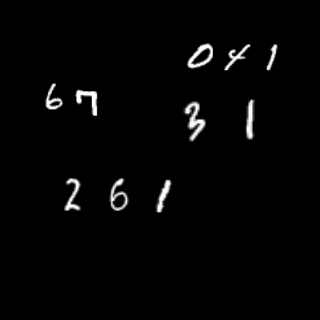 041
67
31
261